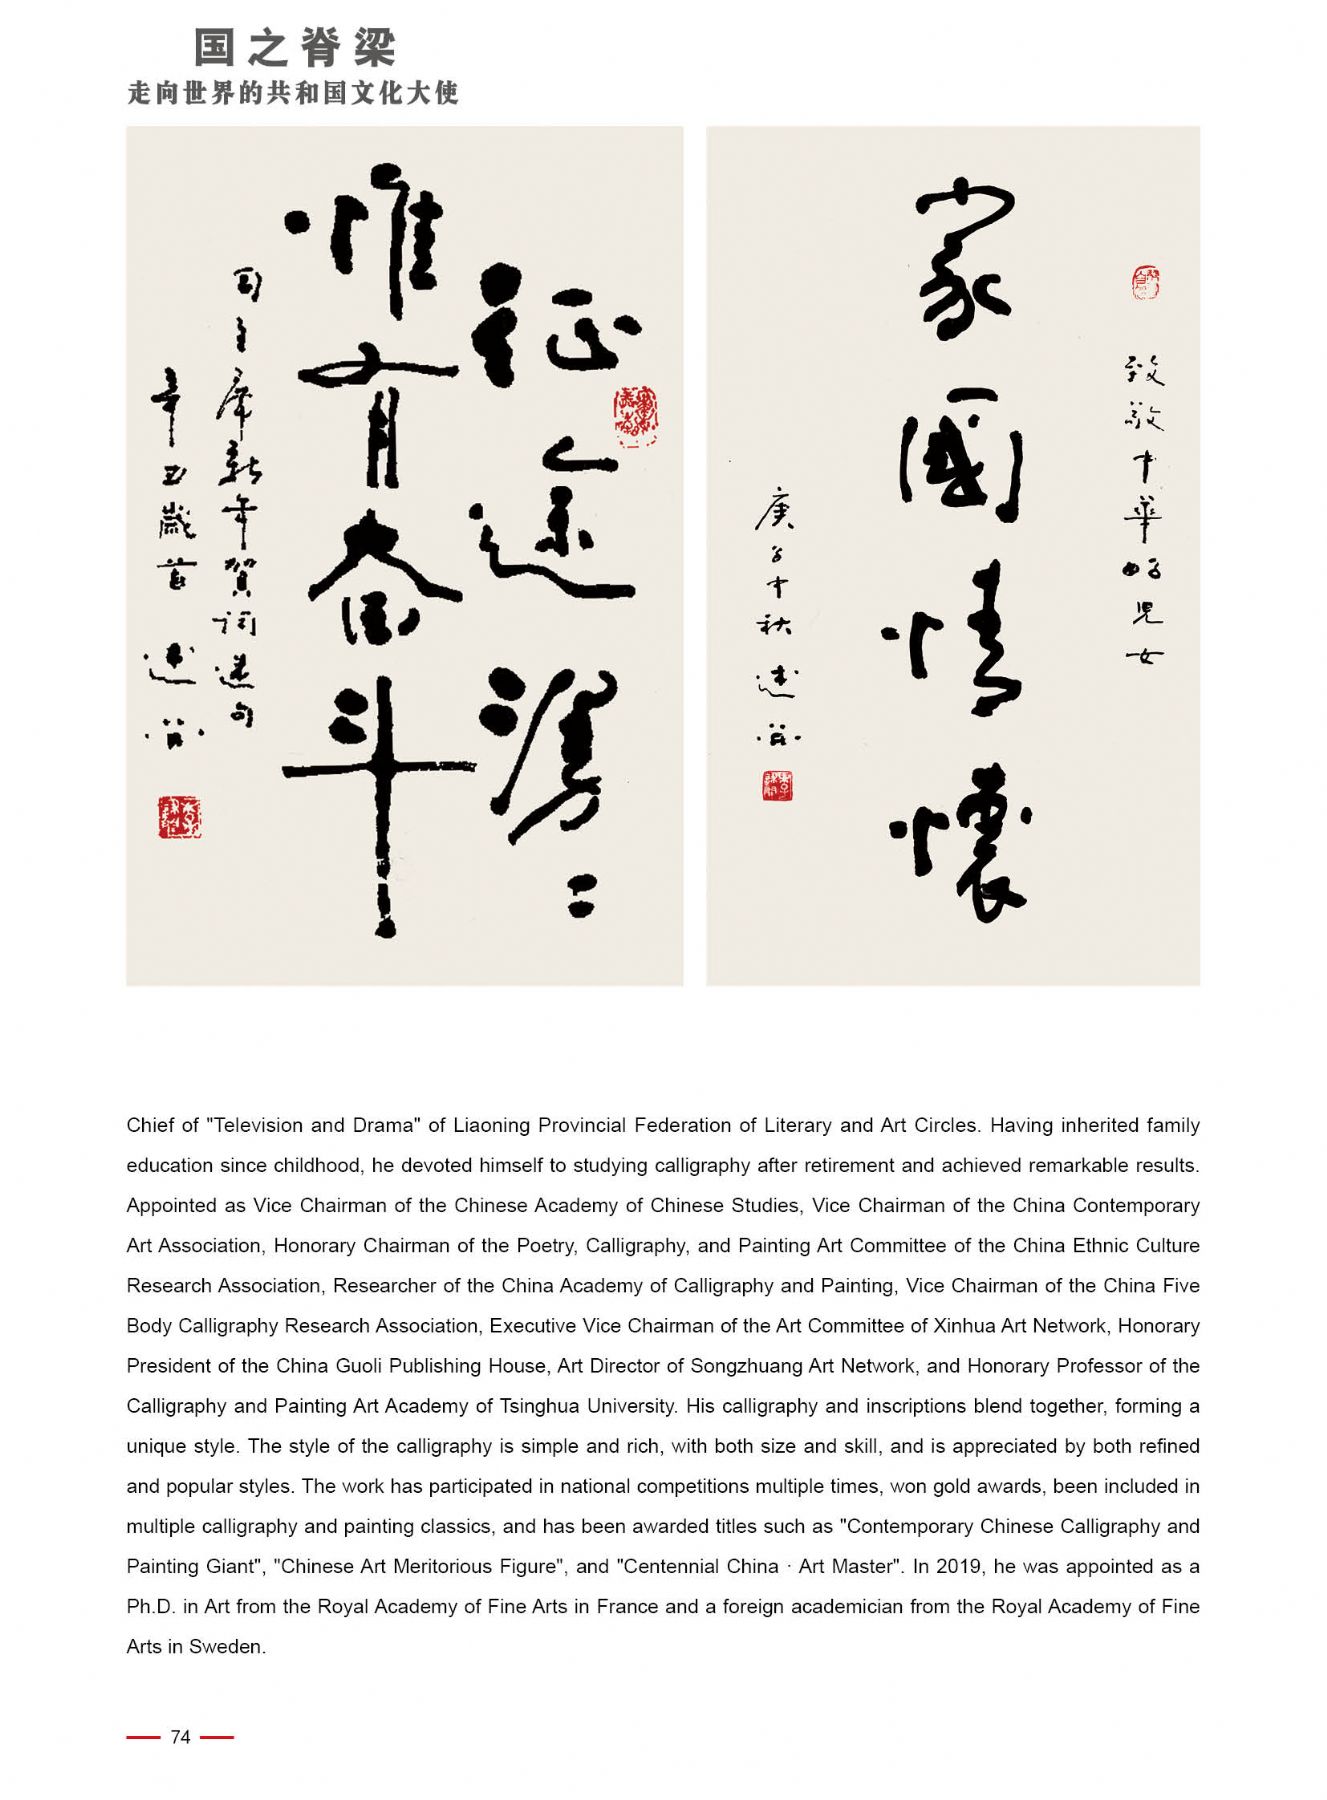 国之脊梁
走向世界的共和国文化大使
征途漫漫
惟有奋斗
习主席新年贺词选句
辛丑岁首 述谷
致敬中华好儿女
家國情懷
庚子中秋 述谷
Chief of "Television and Drama" of Liaoning Provincial Federation of Literary and Art Circles. Having inherited family
education since childhood, he devoted himself to studying calligraphy after retirement and achieved remarkable results.
Appointed as Vice Chairman of the Chinese Academy of Chinese Studies, Vice Chairman of the China Contemporary
Art Association, Honorary Chairman of the Poetry, Calligraphy, and Painting Art Committee of the China Ethnic Culture
Research Association, Researcher of the China Academy of Calligraphy and Painting, Vice Chairman of the China Five
Body Calligraphy Research Association, Executive Vice Chairman of the Art Committee of Xinhua Art Network, Honorary
President of the China Guoli Publishing House, Art Director of Songzhuang Art Network, and Honorary Professor of the
Calligraphy and Painting Art Academy of Tsinghua University. His calligraphy and inscriptions blend together, forming a
unique style. The style of the calligraphy is simple and rich, with both size and skill, and is appreciated by both refined
and popular styles. The work has participated in national competitions multiple times, won gold awards, been included in
multiple calligraphy and painting classics, and has been awarded titles such as "Contemporary Chinese Calligraphy and
Painting Giant", "Chinese Art Meritorious Figure", and "Centennial China · Art Master". In 2019, he was appointed as a
Ph.D. in Art from the Royal Academy of Fine Arts in France and a foreign academician from the Royal Academy of Fine
Arts in Sweden.
74